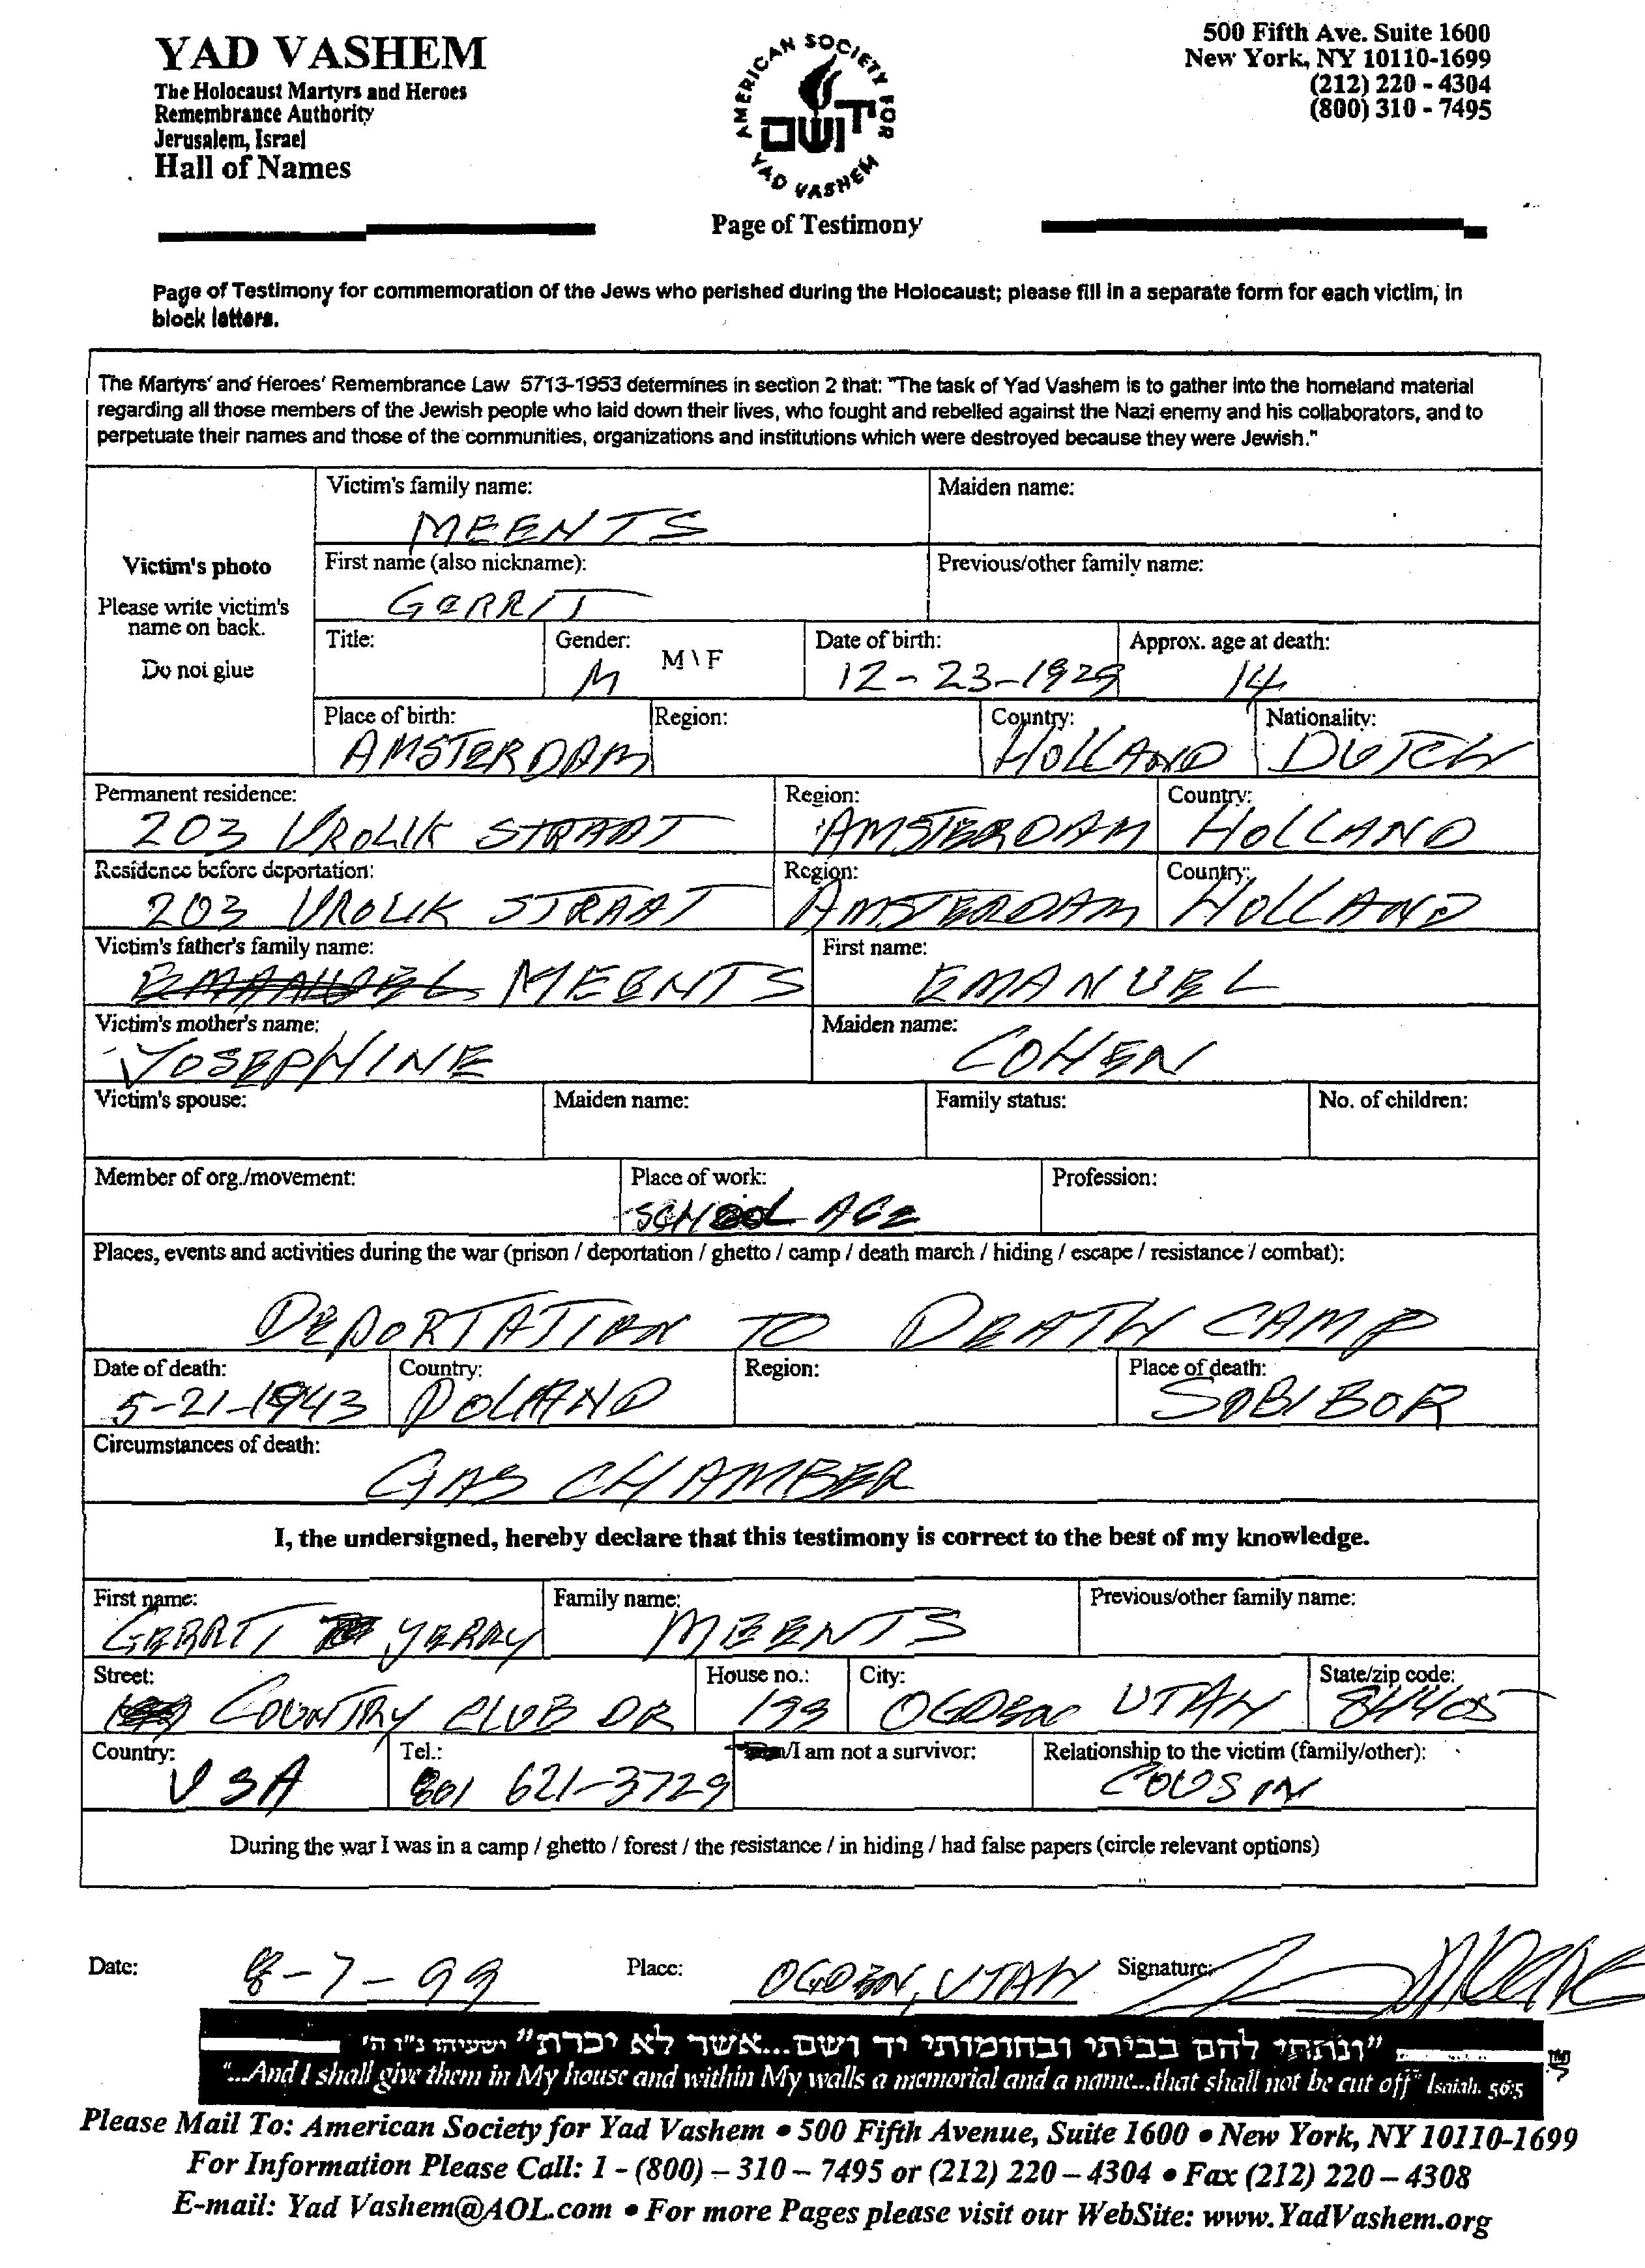 YAD VASHEM
The Holocaust Martyrs and Heroes
Remembrance Authority
Jerusalem, Israel
Hall of Names
AMERICAN SOCIETY FOR
YAD VASHEM
יד ושם
Page of Testimony
500 Fifth Ave. Suite 1600
New York, NY 10110-1699
(212) 220 - 4304
(800) 310 - 7495
Page of Testimony for commemoration of the Jews who perished during the Holocaust; please fill in a separate form for each victim, in
block letters.
The Martyrs' and Heroes' Remembrance Law 5713-1953 determines in section 2 that: "The task of Yad Vashem is to gather into the homeland material
regarding all those members of the Jewish people who laid down their lives, who fought and rebelled against the Nazi enemy and his collaborators, and to
perpetuate their names and those of the communities, organizations and institutions which were destroyed because they were Jewish."
Victim's photo
Please write victim's
name on back.
Do not glue
Victim's family name: Maiden name:
MEENTS
First name (also nickname): Previous/other family name:
GERRIT
Title: Gender: M\F Date of birth: Approx. age at death:
M 12-23-1929 14
Place of birth: Region: Country: Nationality:
AMSTERDAM HOLLAND DUTCH
Permanent residence: Region: Country:
203 VROLIK STRAAT AMSTERDAM HOLLAND
Residence before deportation: Region: Country:
203 VROLIK STRAAT AMSTERDAM HOLLAND
Victim's father's family name: First name:
EMANUEL MEENTS EMANUEL
Victim's mother's name: Maiden name:
YOSEPHINE COHEN
Victim's spouse: Maiden name: Family status: No. of children:
Member of org./movement: Place of work: Profession:
SCHOOL AGE
Places, events and activities during the war (prison / deportation / ghetto / camp / death march / hiding / escape / resistance / combat):
DEPORTATION TO DEATH CAMP
Date of death: Country: Region: Place of death:
5-21-1943 POLAND SOBIBOR
Circumstances of death:
GAS CHAMBER
I, the undersigned, hereby declare that this testimony is correct to the best of my knowledge.
First name: Family name: Previous/other family name:
GERRIT YERRY MEENTS
Street: House no.: City: State/zip code:
COUNTRY CLUB DR 199 OGDEN UTAH 84405
Country: Tel.: /I am not a survivor: Relationship to the victim (family/other):
USA 801 621-3729 COUSIN
During the war I was in a camp / ghetto / forest / the resistance / in hiding / had false papers (circle relevant options)
Date: 8-7-99 Place: OGDEN, UTAH Signature:
"ונתתי להם בביתי ובחומותי יד ושם...אשר לא יכרת" ישעיהו נ"ו ה'
"...And I shall give them in My house and within My walls a memorial and a name...that shall not be cut off" Isaiah. 56:5
Please Mail To: American Society for Yad Vashem • 500 Fifth Avenue, Suite 1600 • New York, NY 10110-1699
For Information Please Call: 1 - (800) – 310 – 7495 or (212) 220 – 4304 • Fax (212) 220 – 4308
E-mail: Yad Vashem@AOL.com • For more Pages please visit our WebSite: www.YadVashem.org